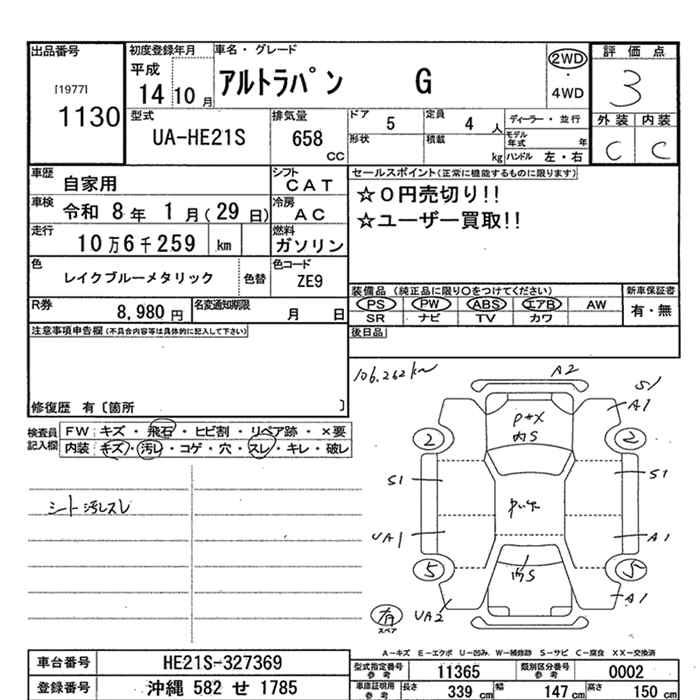 出品番号
[1977]
1130
初度登録年月
平成
14 10 月
車名・グレード
アルトラパン G
2WD
・
4WD
評価点
3
外装 内装
C C
型式
UA-HE21S
排気量
658
CC
ドア
5
定員
4 人
形状
積載
kg
ディーラー・並行
モデル
年式 年
ハンドル 左・右
車歴
自家用
シフト
CAT
車検
令和 8 年 1 月(29 日)
冷房
AC
走行
10 万 6 千 259 km
燃料
ガソリン
色
レイクブルーメタリック
色替
色コード
ZE9
R券
8,980 円
名変通知期限
月 日
セールスポイント(正常に機能するものに限ります)
☆0円売切り!!
☆ユーザー買取!!
装備品 (純正品に限り○をつけてください)
PS PW ABS エアB AW
SR ナビ TV カワ
新車保証書
有・無
後日品
注意事項申告欄(不具合内容等は具体的に記入して下さい)
修復歴 有〔箇所 〕
検査員
記入欄
FW キズ・飛石・ヒビ割・リペア跡・×要
内装 キズ・汚レ・コゲ・穴・スレ・キレ・破レ
シート汚レスレ
106,262km
A2
S1
A1
2 2
内S
S1 S1
UA1 A1
5 5
内S
UA2 A1
有
スペア
A-キズ E-エクボ U-凹み W-補修跡 S-サビ C-腐食 XX-交換済
車台番号
HE21S-327369
登録番号
沖縄 582 せ 1785
型式指定番号
参考
11365
類別区分番号
参考
0002
車庫証明用
参考
長さ
339 cm
幅
147 cm
高さ
150 cm